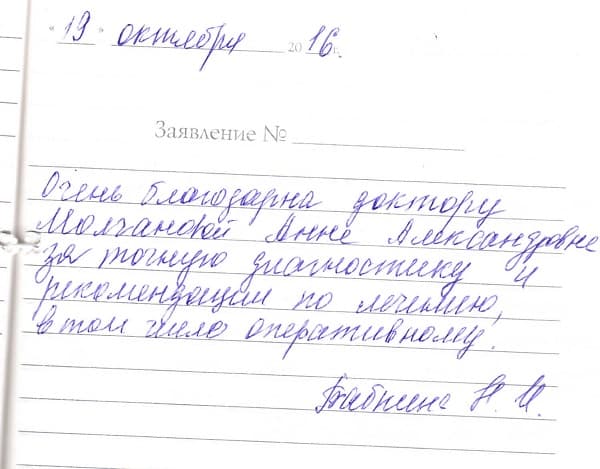 "19" октября 2016г.
Заявление №
Очень благодарна доктору
Молчановой Анне Александровне
за точную диагностику и
рекомендации по лечению,
в том числе оперативному.
Бабкина Н. И.